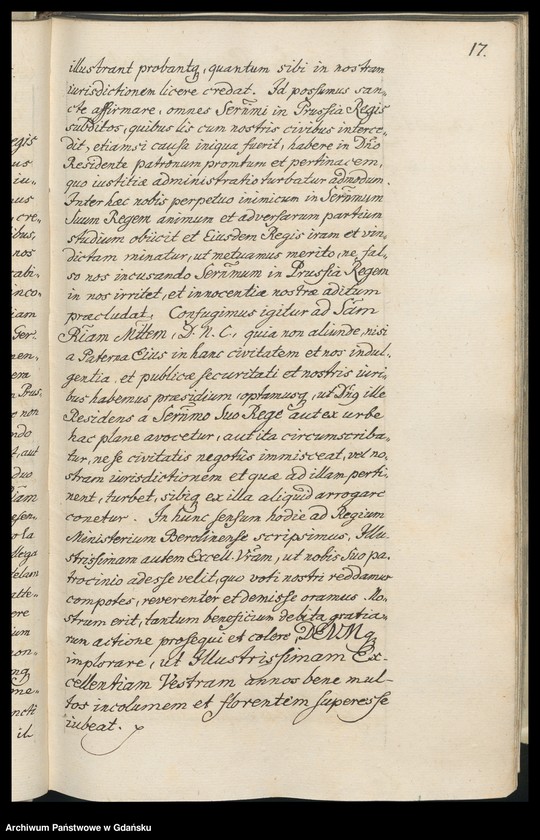 17.
illustrant probantq, quantum sibi in nostram
iurisdictionem licere credat. Id possumus san-
cte affirmare, omnes Sernmi in Prussia Regis
subditos, quibus lis cum nostris civibus interce-
dit, etiamsi causa iniqua fuerit, habere in Dno
Residente patronum promtum et pertinacem,
quo iustitiæ administratio turbatur admodum.
Inter hæc nobis perpetuo inimicum in Sernmum
Suum Regem animum et adversarum partium
studium obiicit et Eiusdem Regis iram et vin-
dictam minatur, ut metuamus merito, ne fal-
so nos incusando Sernmum in Prussia Regem
in nos irritet, et innocentiæ nostræ aditum
præcludat. Confugimus igitur ad Sam
Riam Mttem, D. N. C., quia non aliunde, nisi
a Paterna Eius in hanc civitatem et nos indul-
gentia, et publicæ securitati et nostris iuri-
bus habemus præsidium, optamusq, ut Dnq ille
Residens a Sernmo Suo Rege aut ex urbe
hac plane avocetur, aut ita circumscriba-
tur, ne se civitatis negotiis immisceat, vel no-
stram iurisdictionem et quæ ad illam perti-
nent, turbet, sibiq ex illa aliquid arrogare
conetur. In hunc sensum hodie ad Regium
Ministerium Berolinense scripsimus, Illu-
strissimam autem Excell. Vram, ut nobis Suo pa-
trocinio adesse velit, quo voti nostri reddamur
compotes, reverenter et demisse oramus. No-
strum erit, tantum beneficium debita gratia-
rum actione prosequi et colere, DEUMq
implorare, ut Illustrissimam Ex-
cellentiam Vestram annos bene mul-
tos incolumem et florentem superesse
iubeat.
Archiwum Państwowe w Gdańsku